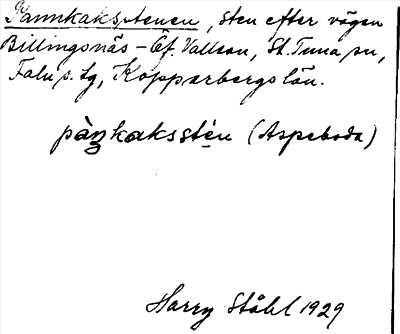 Pannkakstenen, sten efter vägen
Billingsnäs – Öf. Vallson, St. Tuna sn,
Falu s. lg, Kopparbergs län.
pàŋkaksstén (Aspeboda)
Harry Ståhl 1929